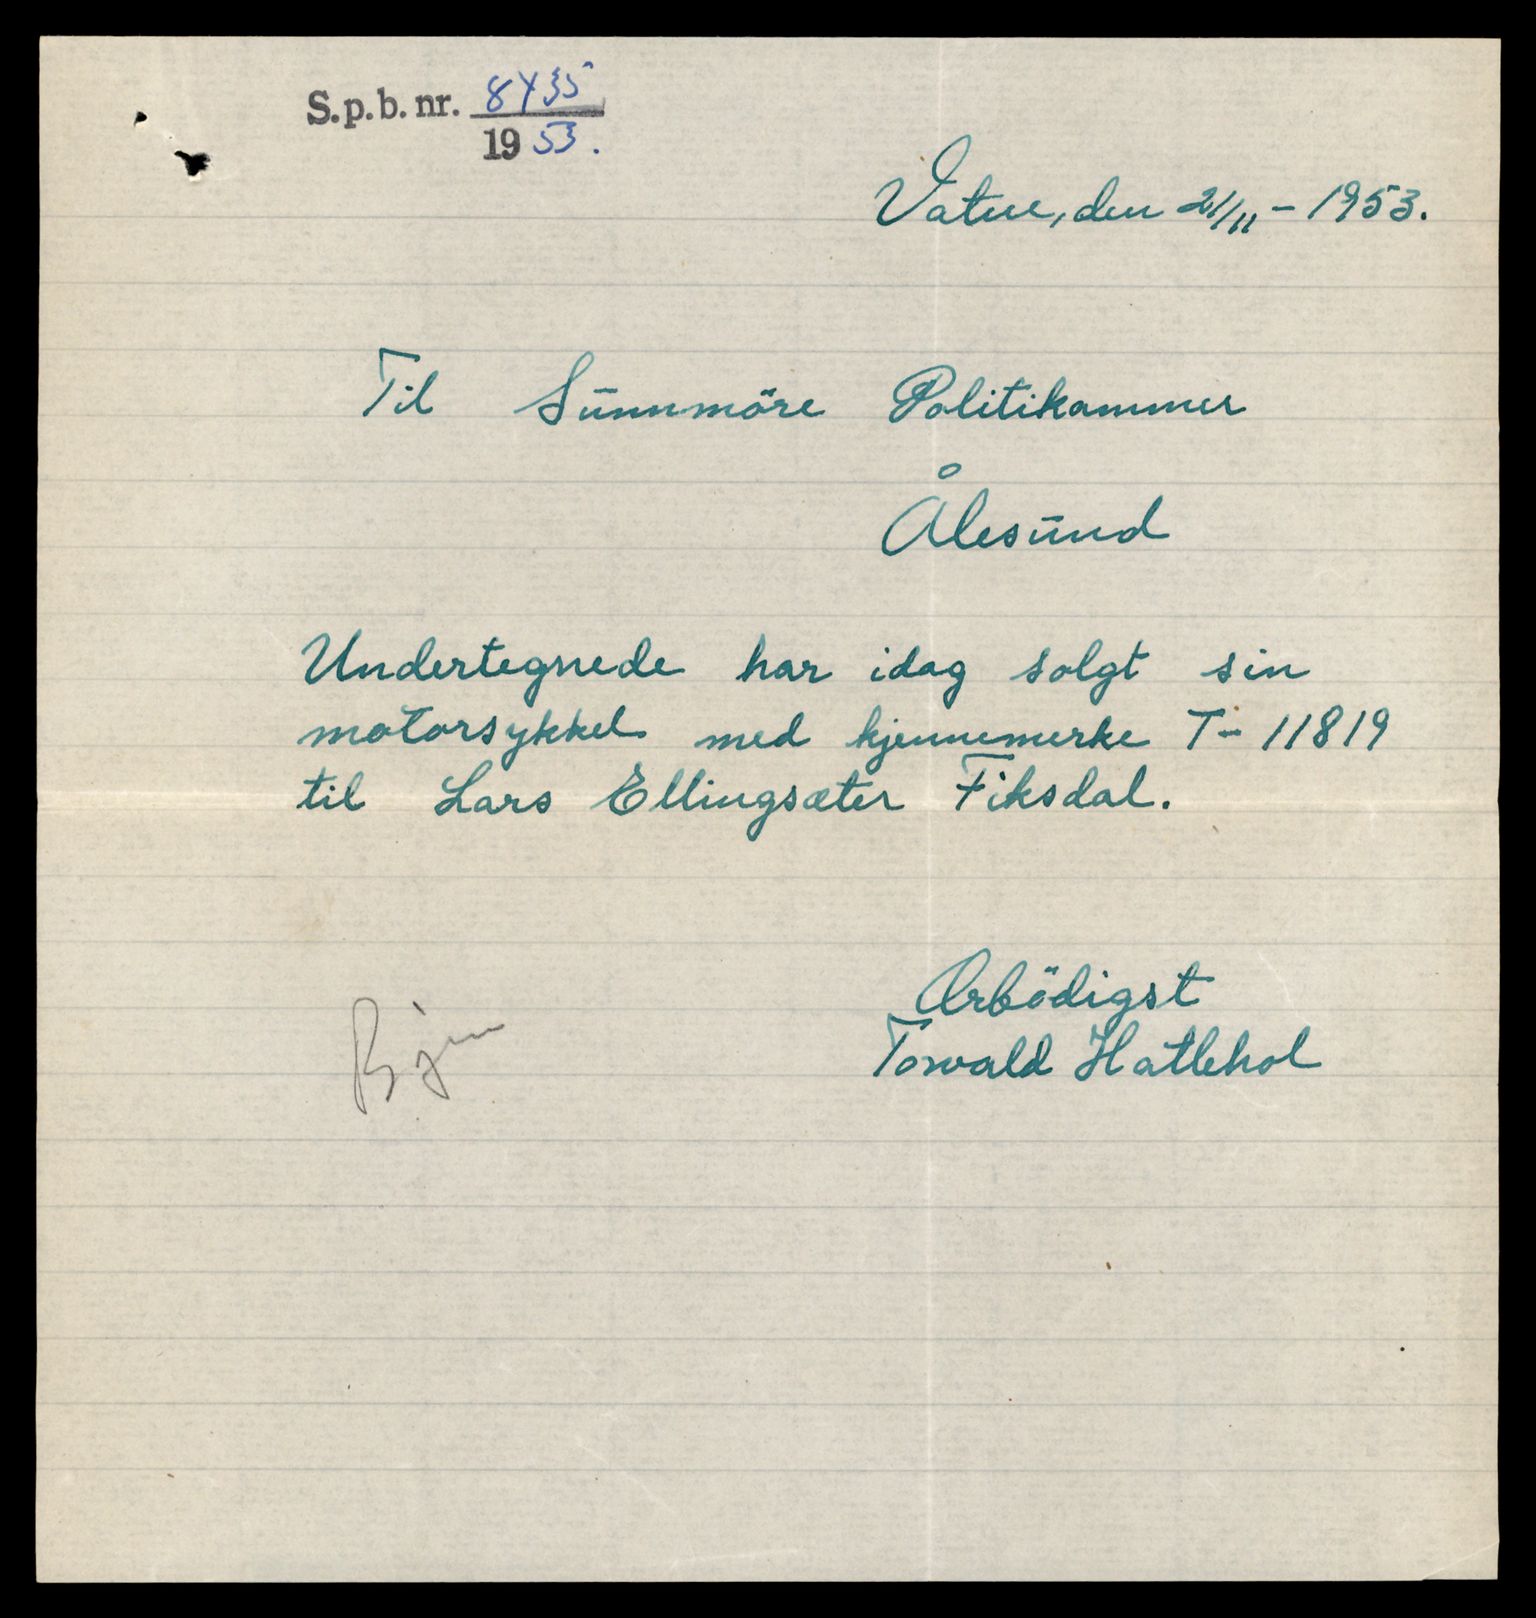 S.p.b. nr. 8435
1953.
Vatne, den 21/11 - 1953.
Til Sunnmöre Politikammer
Ålesund
Undertegnede har idag solgt sin
motorsykkel med kjennemerke T- 11819
til Lars Ellingsæter Fiksdal.
Ærbödigst
Torvald Hatlehol